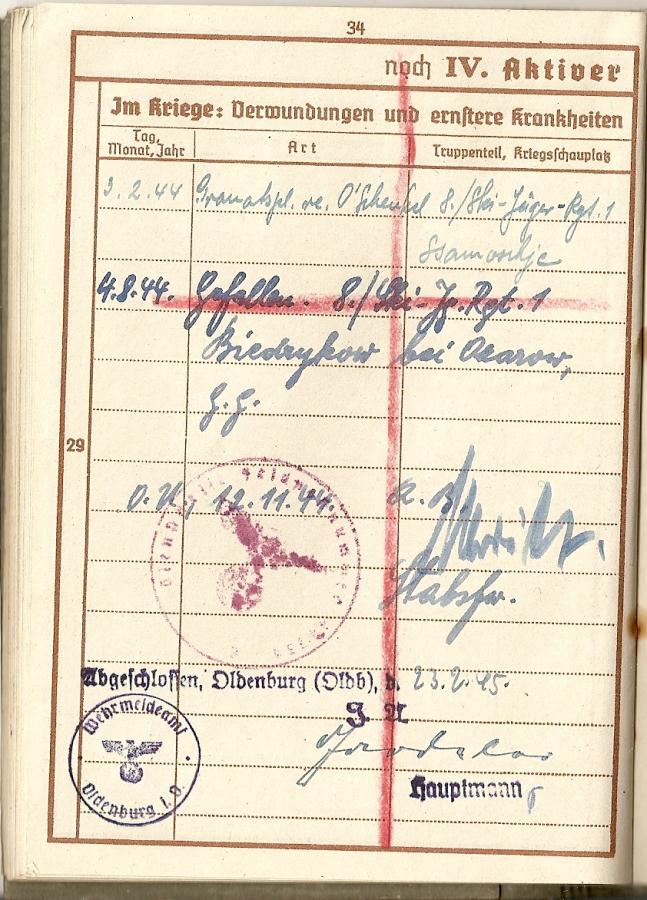 34
noch IV. Aktiver
Im Kriege: Verwundungen und ernstere Krankheiten
Tag, Monat, Jahr
Art
Truppenteil, Kriegsschauplatz
3.2.44 Granatspl. re. O'Schenkel 8./Ski-Jäger-Rgt. 1
4.8.44. Gefallen. 8./Ski-Jg. Rgt. 1
Biedrykow bei Ozarow,
G.G.
29
O.U., 12.11.44.
Stabsfw.
Abgeschlossen, Oldenburg (Oldb), d. 23.2.45.
J A
Hauptmann
Wehrmeldeamt
Oldenburg i. O.